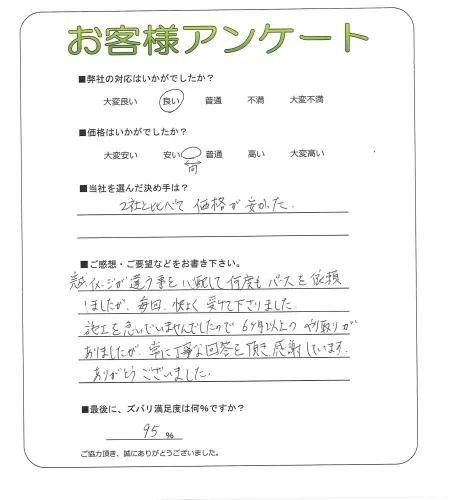 お客様アンケート
■弊社の対応はいかがでしたか？
大変良い 良い 普通 不満 大変不満
■価格はいかがでしたか？
大変安い 安い 普通 高い 大変高い
向
■当社を選んだ決め手は？
2社と比べて 価格が安かった.
■ご感想・ご要望などをお書き下さい。
イメージが違う事を心配して何度もパースを依頼
しましたが、毎回、快よく受けて下さりました.
施工を急いでいませんでしたので6ヶ月以上のやり取りが
ありましたが、常に丁寧な回答を頂き感謝しています.
ありがとうございました.
■最後に、ズバリ満足度は何％ですか？
95 %
ご協力頂き、誠にありがとうございました。